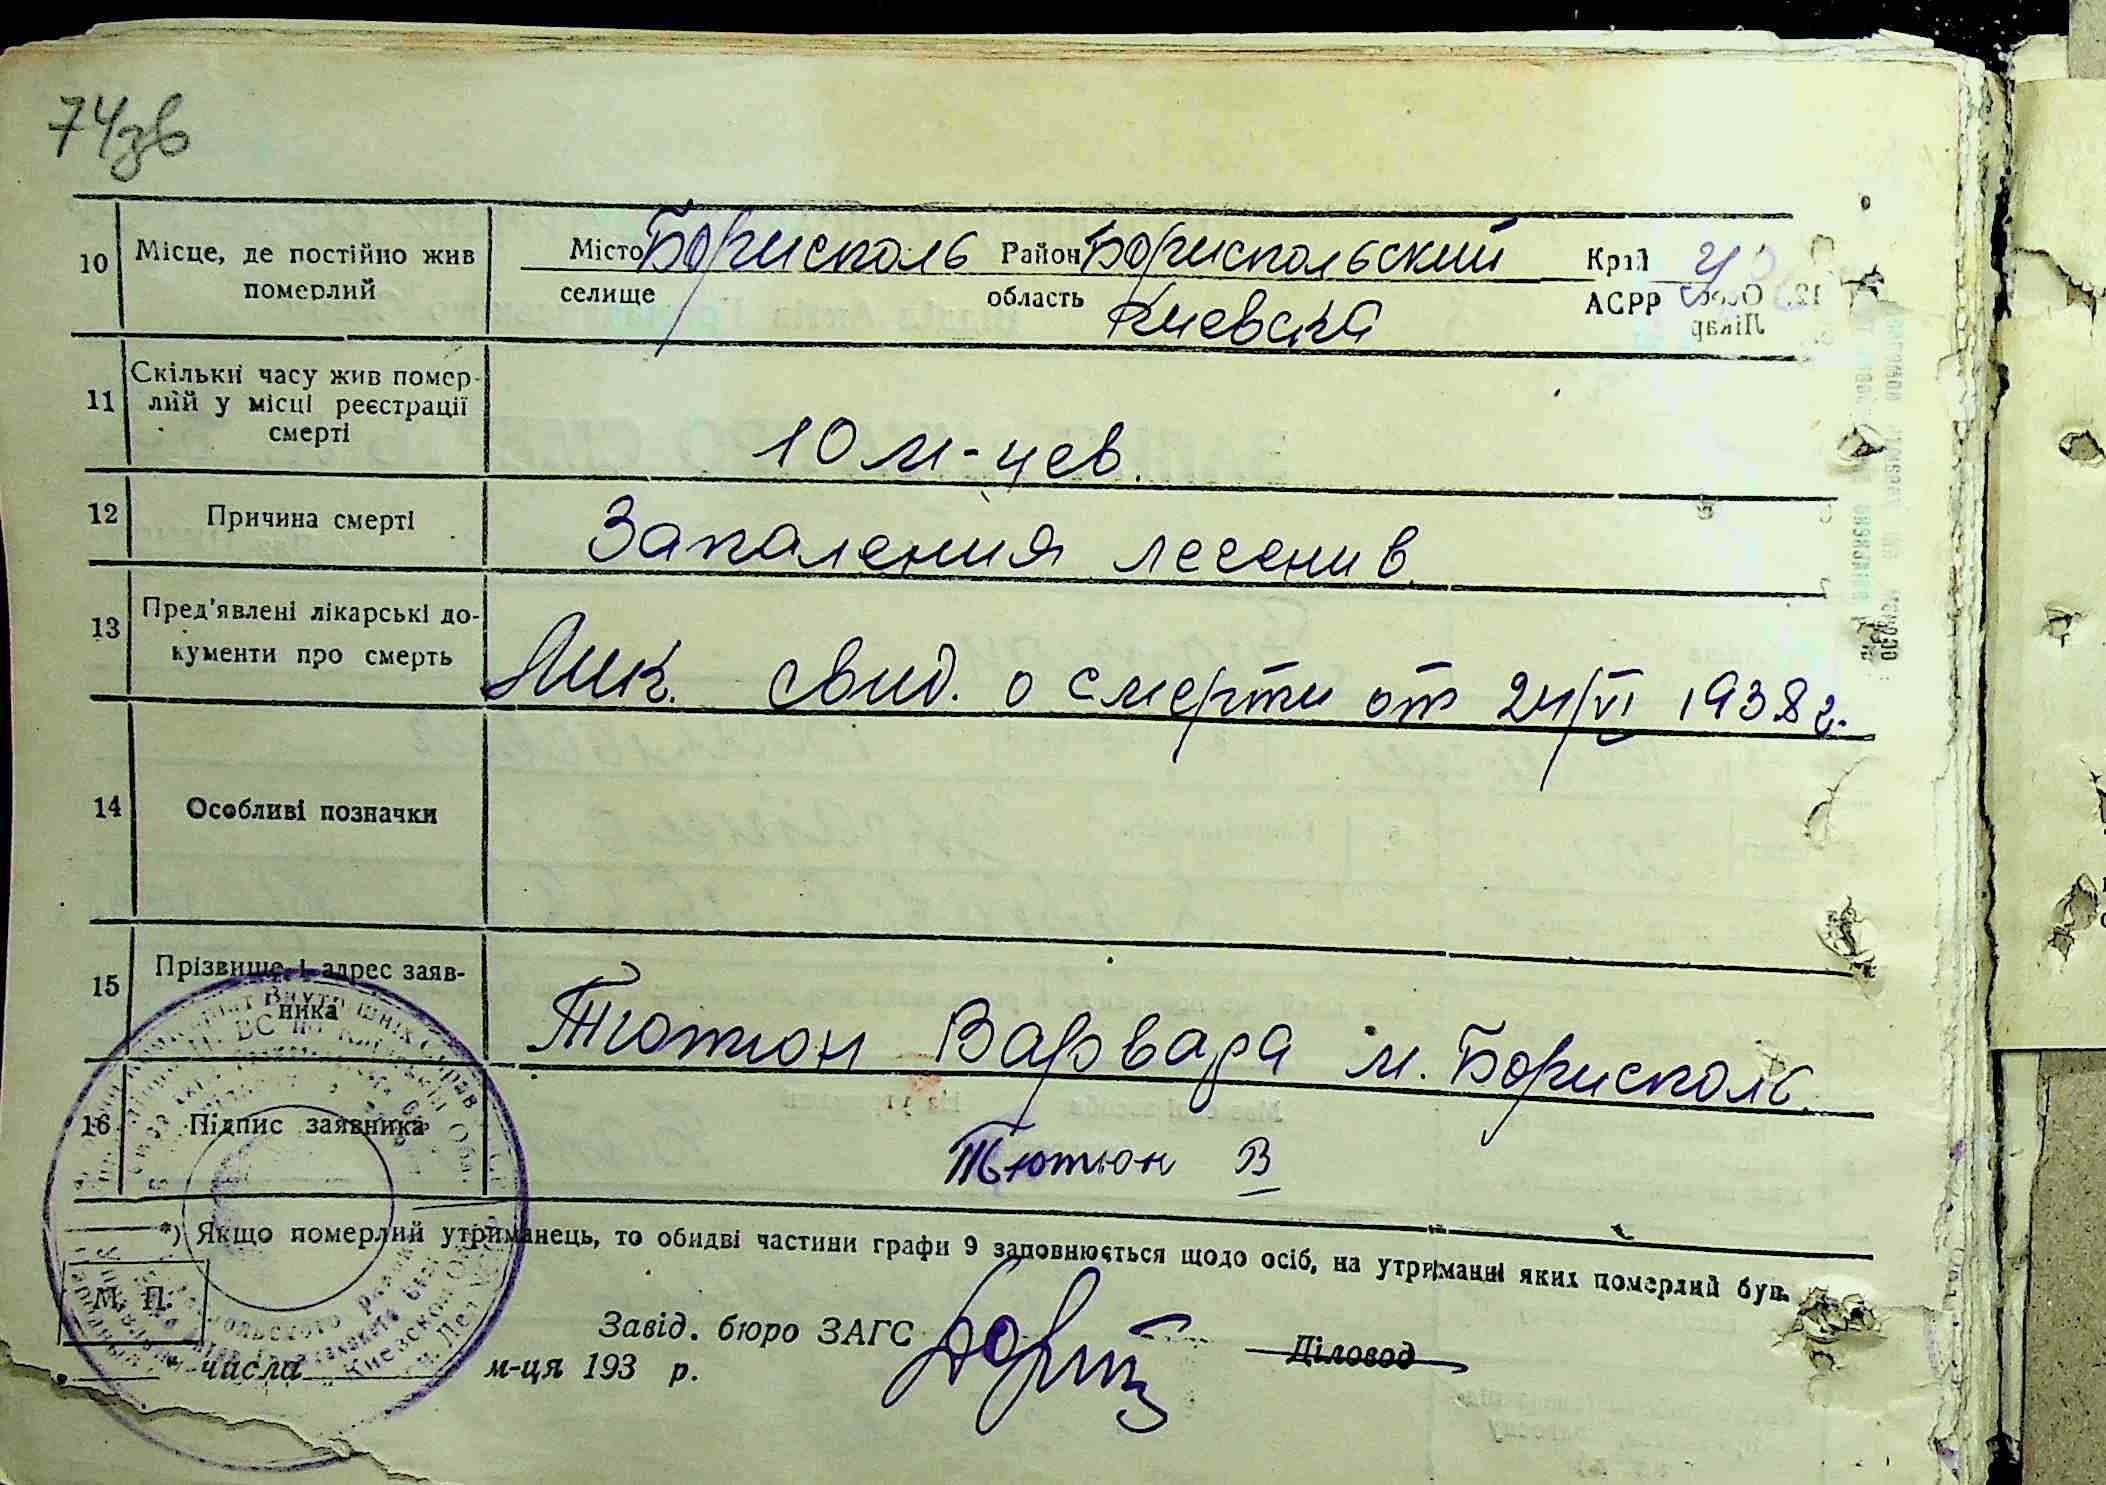 74зв
10 Місце, де постійно жив померлий
Місто Борисполь Район Бориспольский Край У
селище область Киевска АСРР
11 Скільки часу жив помер-
лий у місці реєстрації
смерті
10 м-цев.
12 Причина смерті Запаления легенив
13 Пред'явлені лікарські до-
кументи про смерть
Лик. свид. о смерти от 24/VI 1938 г.
14 Особливі позначки
15 Прізвище і адрес заяв-
ника
Тютюн Варвара м. Борисполь.
16 Підпис заявника Тютюн В
*) Якщо померлий утриманець, то обидві частини графи 9 заповнюється щодо осіб, на утриманні яких померлий був.
М. П.
Завід. бюро ЗАГС Діловод
" " числа м-ця 193 р.